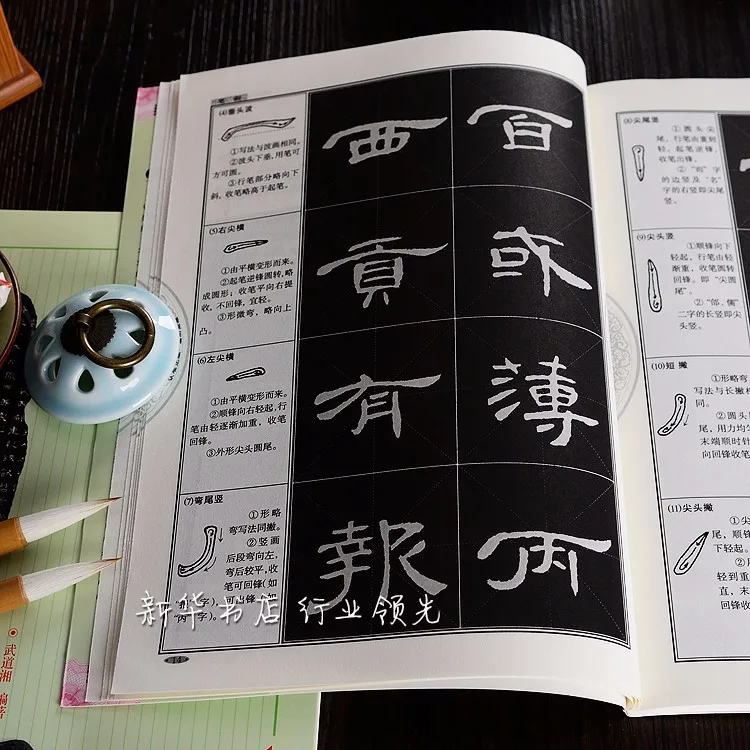 (4)垂头波
①写法与波画相同。
②波头下垂,用笔
方可圆。
③行笔部分略向下
斜,收笔略高于起笔。
(5)右尖横
①由平横变形而来。
②起笔逆锋圆转,略
成圆形;收笔平向右提
收,不回锋,宜轻。
③形微弯,略向上
凸。
(6)左尖横
①由平横变形而来。
②顺锋向右轻起,行
笔由轻逐渐加重,收笔
回锋。
③外形尖头圆尾。
(7)弯尾竖
①形略
弯写法同撇。
②竖画
后段弯向左,
弯后较平,收
笔可回锋(如
字)。
西 百
貢 或
有 薄
報 丙
(8)尖尾竖
①圆头尖
尾,行笔由重到
轻,起笔逆锋,
收笔出锋。
②“而”字
的边竖及“名”
字的右竖即尖尾
竖。
(9)尖头竖
①顺锋向下
轻起,行笔由轻
渐重,收笔圆转
回锋。即“尖圆
尾”。
②“部、儒”
二字的长竖即尖
头竖。
(10)短撇
①形略弯
写法与长撇相
同。
②圆头
尾,用力均匀
末端顺时针
向回锋收笔
(11)尖头撇
①尖
尾,顺锋
下轻起。
轻到重
直,末
回锋收
新华书店 行业领先
武道湘 编著